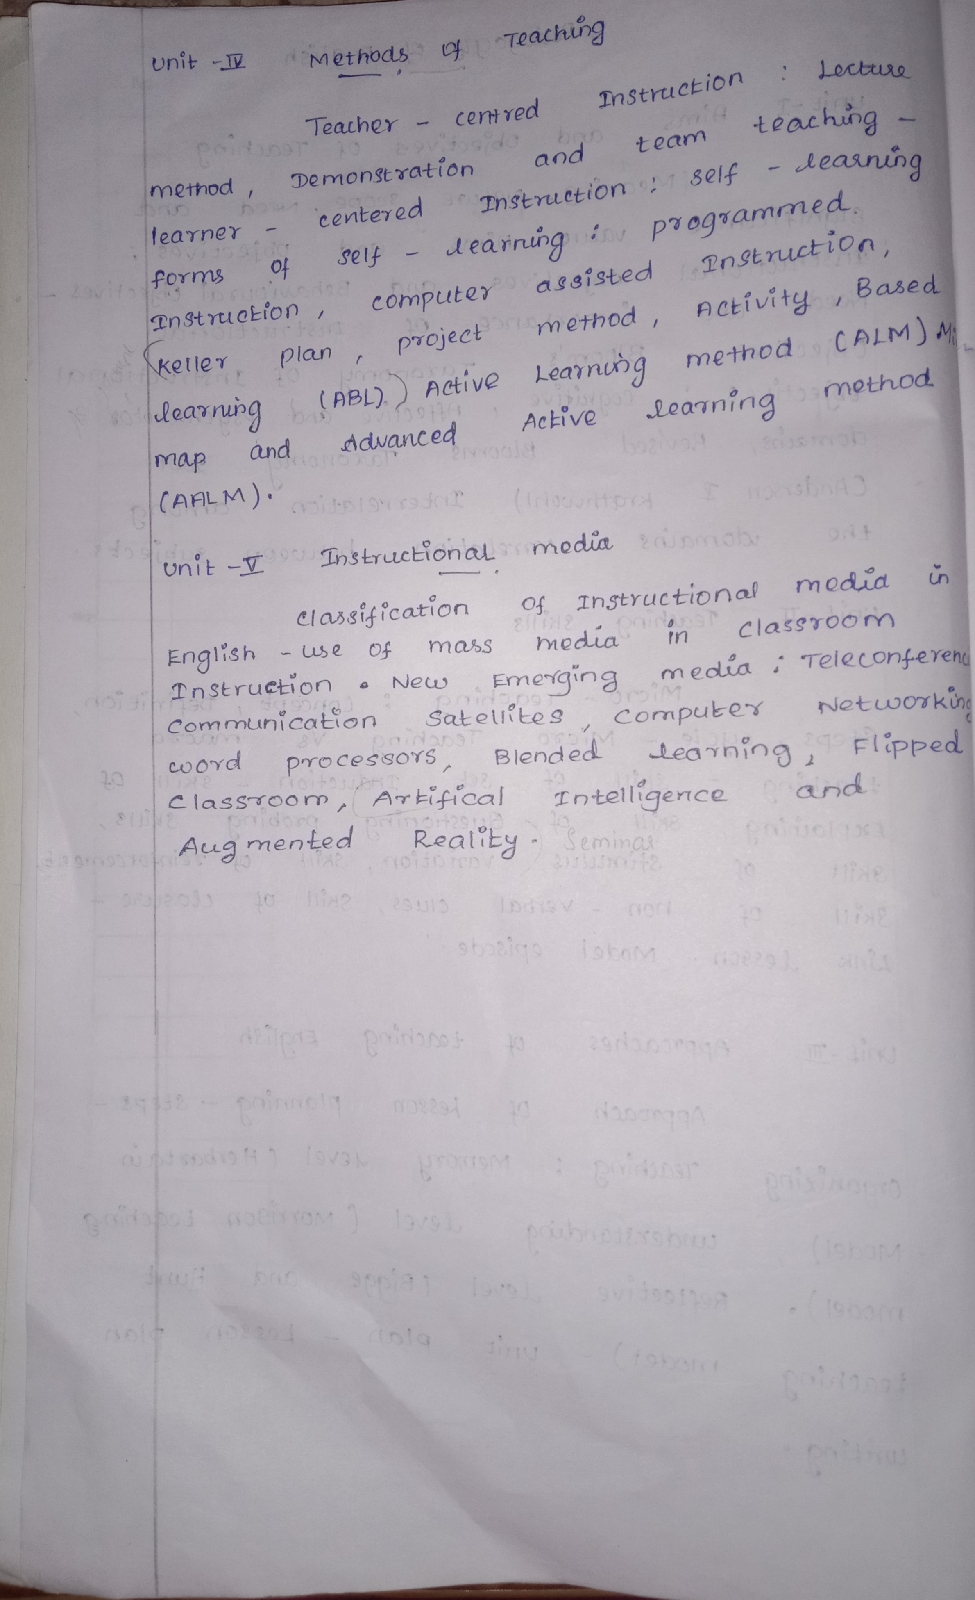 Unit - IV Methods of Teaching
Teacher - centred Instruction : Lecture
method, Demonstration and team teaching -
learner - centered Instruction : self - learning
forms of self - learning : programmed.
Instruction, computer assisted Instruction,
(Keller plan, project method, Activity, Based
learning (ABL).) Active Learning method (ALM)
map and Advanced Active learning method
(AALM).
Unit - V Instructional media
classification of Instructional media in
English - use of mass media in classroom
Instruction. New Emerging media : Teleconferenc
communication Satellites, computer Networking
word processors, Blended learning, Flipped
classroom, Artifical Intelligence and
Augmented Reality. Seminar